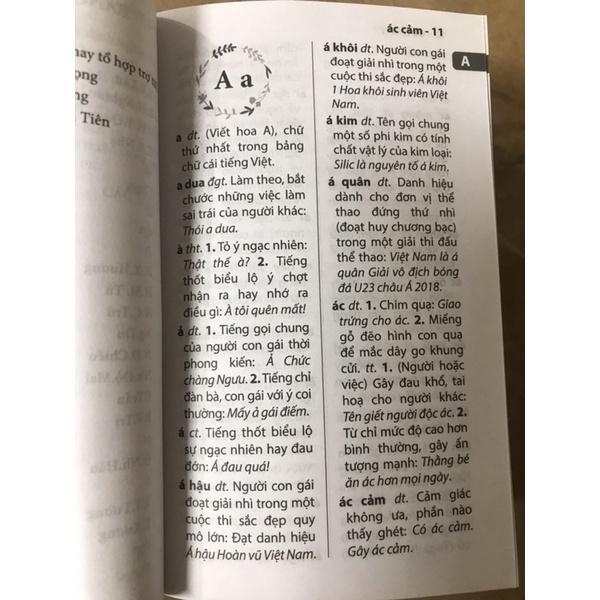 nay tổ hợp trợ từ
ọng
ng
Tiên
ác cảm - 11
A
A a
a dt. (Viết hoa A), chữ
thứ nhất trong bảng
chữ cái tiếng Việt.
a dua đgt. Làm theo, bắt
chước những việc làm
sai trái của người khác:
Thói a dua.
à tht. 1. Tỏ ý ngạc nhiên:
Thật thế à? 2. Tiếng
thốt biểu lộ ý chợt
nhận ra hay nhớ ra
điều gì: À tôi quên mất!
ả dt. 1. Tiếng gọi chung
của người con gái thời
phong kiến: Ả Chức
chàng Ngưu. 2. Tiếng chỉ
đàn bà, con gái với ý coi
thường: Mấy ả gái điếm.
á ct. Tiếng thốt biểu lộ
sự ngạc nhiên hay đau
đớn: Á đau quá!
á hậu dt. Người con gái
đoạt giải nhì trong một
cuộc thi sắc đẹp quy
mô lớn: Đạt danh hiệu
Á hậu Hoàn vũ Việt Nam.
á khôi dt. Người con gái
đoạt giải nhì trong một
cuộc thi sắc đẹp: Á khôi
1 Hoa khôi sinh viên Việt
Nam.
á kim dt. Tên gọi chung
một số phi kim có tính
chất vật lý của kim loại:
Silic là nguyên tố á kim.
á quân dt. Danh hiệu
dành cho đơn vị thể
thao đứng thứ nhì
(đoạt huy chương bạc)
trong một giải thi đấu
thể thao: Việt Nam là á
quân Giải vô địch bóng
đá U23 châu Á 2018.
ác dt. 1. Chim quạ: Giao
trứng cho ác. 2. Miếng
gỗ đẽo hình con quạ
để mắc dây go khung
cửi. tt. 1. (Người hoặc
việc) Gây đau khổ, tai
hoạ cho người khác:
Tên giết người độc ác. 2.
Từ chỉ mức độ cao hơn
bình thường, gây ấn
tượng mạnh: Thằng bé
ăn ác hơn mọi ngày.
ác cảm dt. Cảm giác
không ưa, phần nào
thấy ghét: Có ác cảm.
Gây ác cảm.